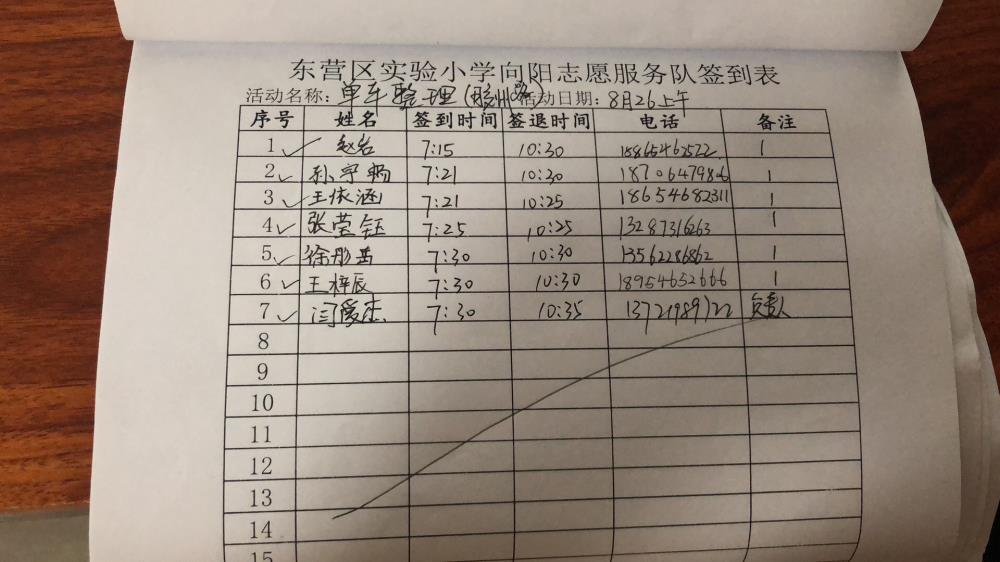 东营区实验小学向阳志愿服务队签到表
活动名称：单车整理(胶州路) 活动日期：8月26上午
序号 姓名 签到时间 签退时间 电话 备注
1 赵名 7:15 10:30 1
2 孙宇畅 7:21 10:30 18706479806 1
3 王依涵 7:21 10:25 18654682311 1
4 张莹钰 7:25 10:25 13287316263 1
5 徐彤茁 7:30 10:30 13562286862 1
6 王梓辰 7:30 10:30 18954652666 1
7 闫爱杰 7:30 10:35 13721989722 负责人
8
9
10
11
12
13
14
15